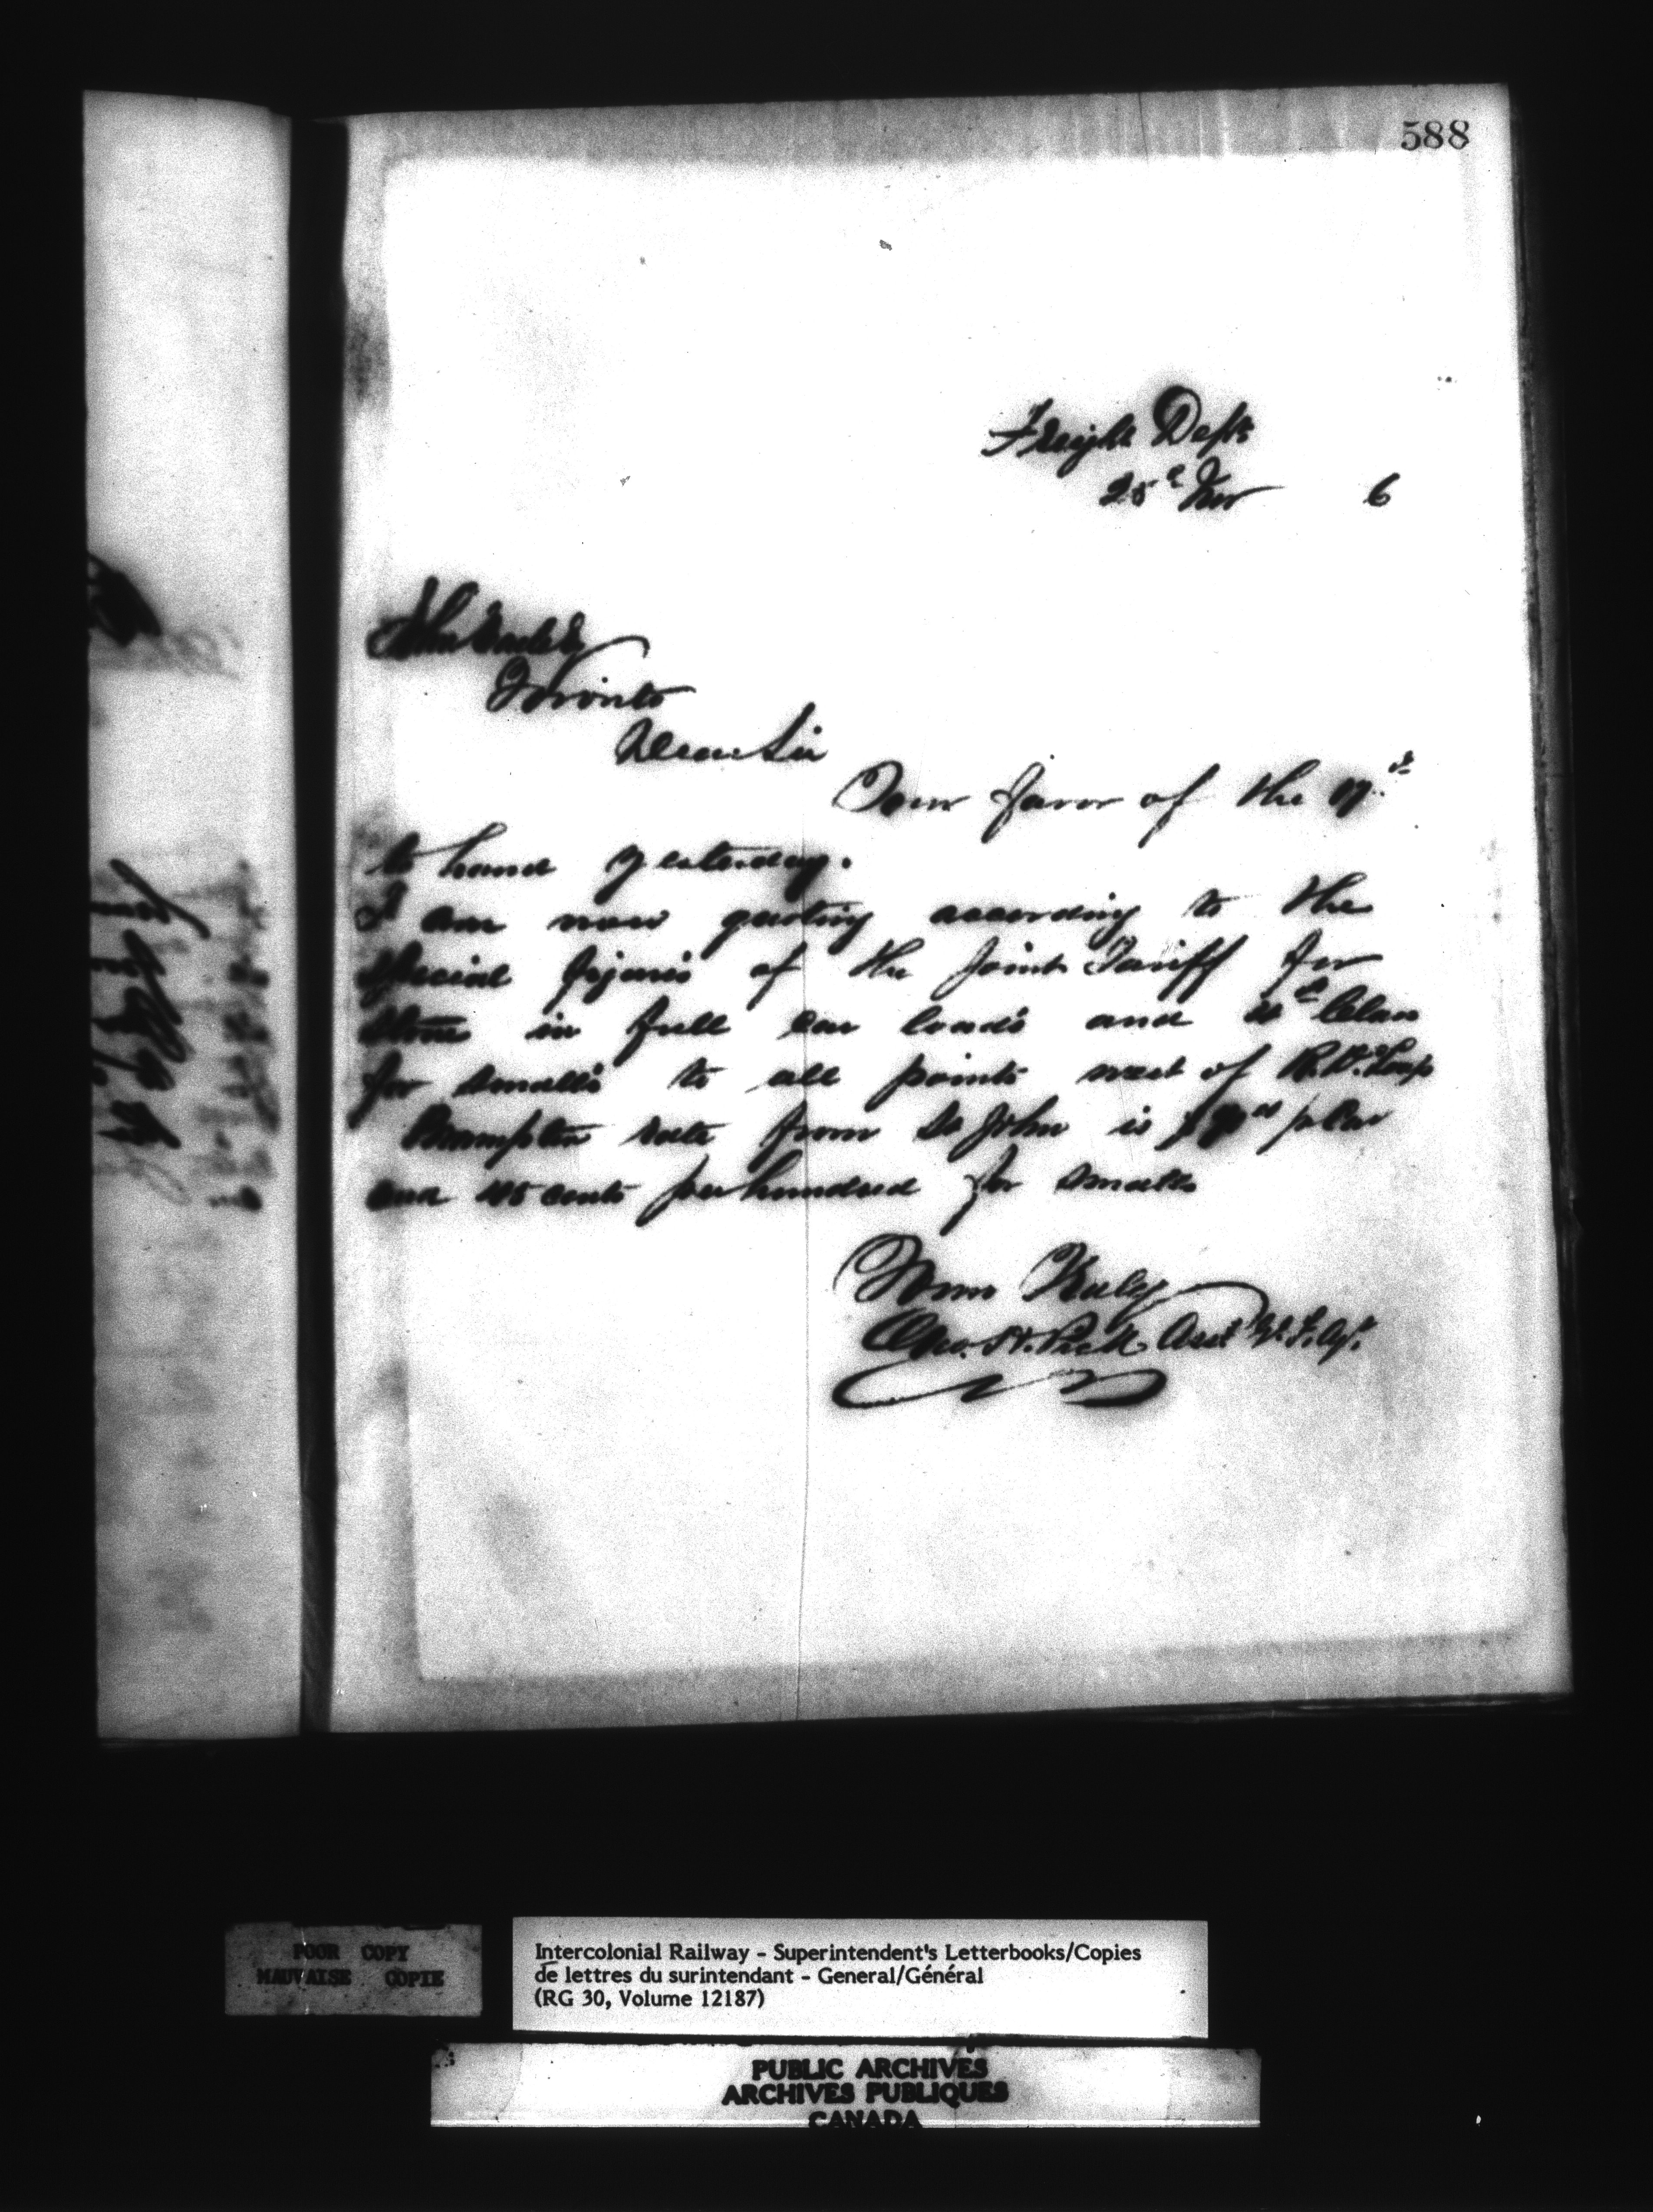 588
Freight Dept
25th Nov 6
John
Toronto
Dear Sir
Your favor of the 17th
to hand yesterday.
I am now quoting according to the
Special figures of the Joint Tariff for
in full car loads and Class
for smalls to all points west of
Brampton rate from St John is
and cents per hundred for smalls
Yours Truly
Geo. Asst Gl. F. Agt.
POOR COPY
MAUVAISE COPIE
Intercolonial Railway - Superintendent's Letterbooks/Copies
de lettres du surintendant - General/Général
(RG 30, Volume 12187)
PUBLIC ARCHIVES
ARCHIVES PUBLIQUES
CANADA